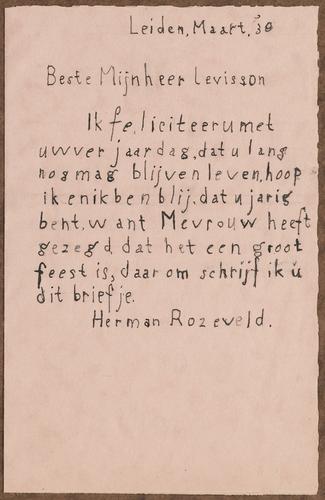 Leiden, Maart, '38
Beste Mijnheer Levisson
Ik feliciteer u met
uw verjaardag, dat u lang
nog mag blijven leven, hoop
ik en ik ben blij, dat u jarig
bent, want Mevrouw heeft
gezegd dat het een groot
feest is, daarom schrijf ik u
dit briefje.
Herman Rozeveld.